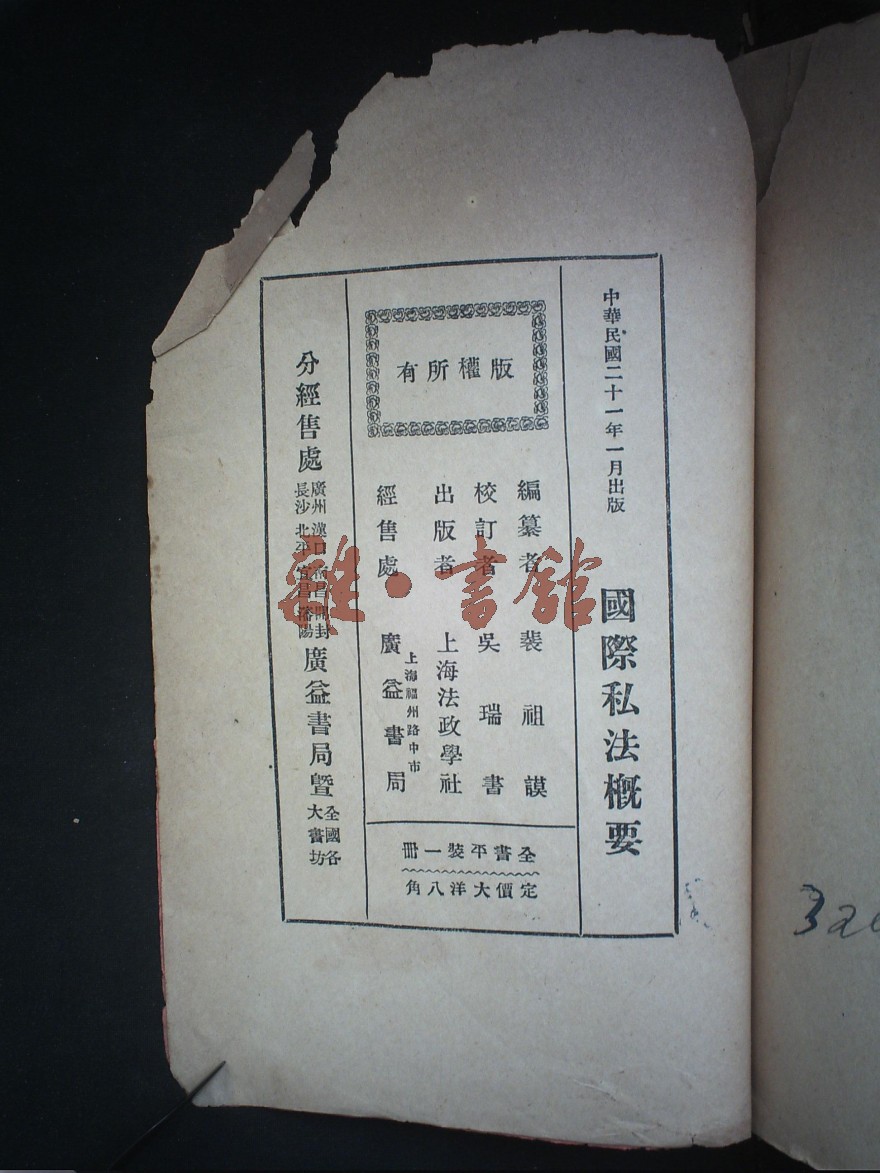 中華民國二十一年一月出版
國際私法概要
版權所有
編纂者 裴祖謨
校訂者 吳瑞書
出版者 上海法政學社
經售處 上海福州路中市 廣益書局
全書平裝一冊
定價大洋八角
分經售處
廣州 漢口 南昌 開封
長沙 北平 宜昌 瀋陽
廣益書局暨
全國各
大書坊
雜·書館
320